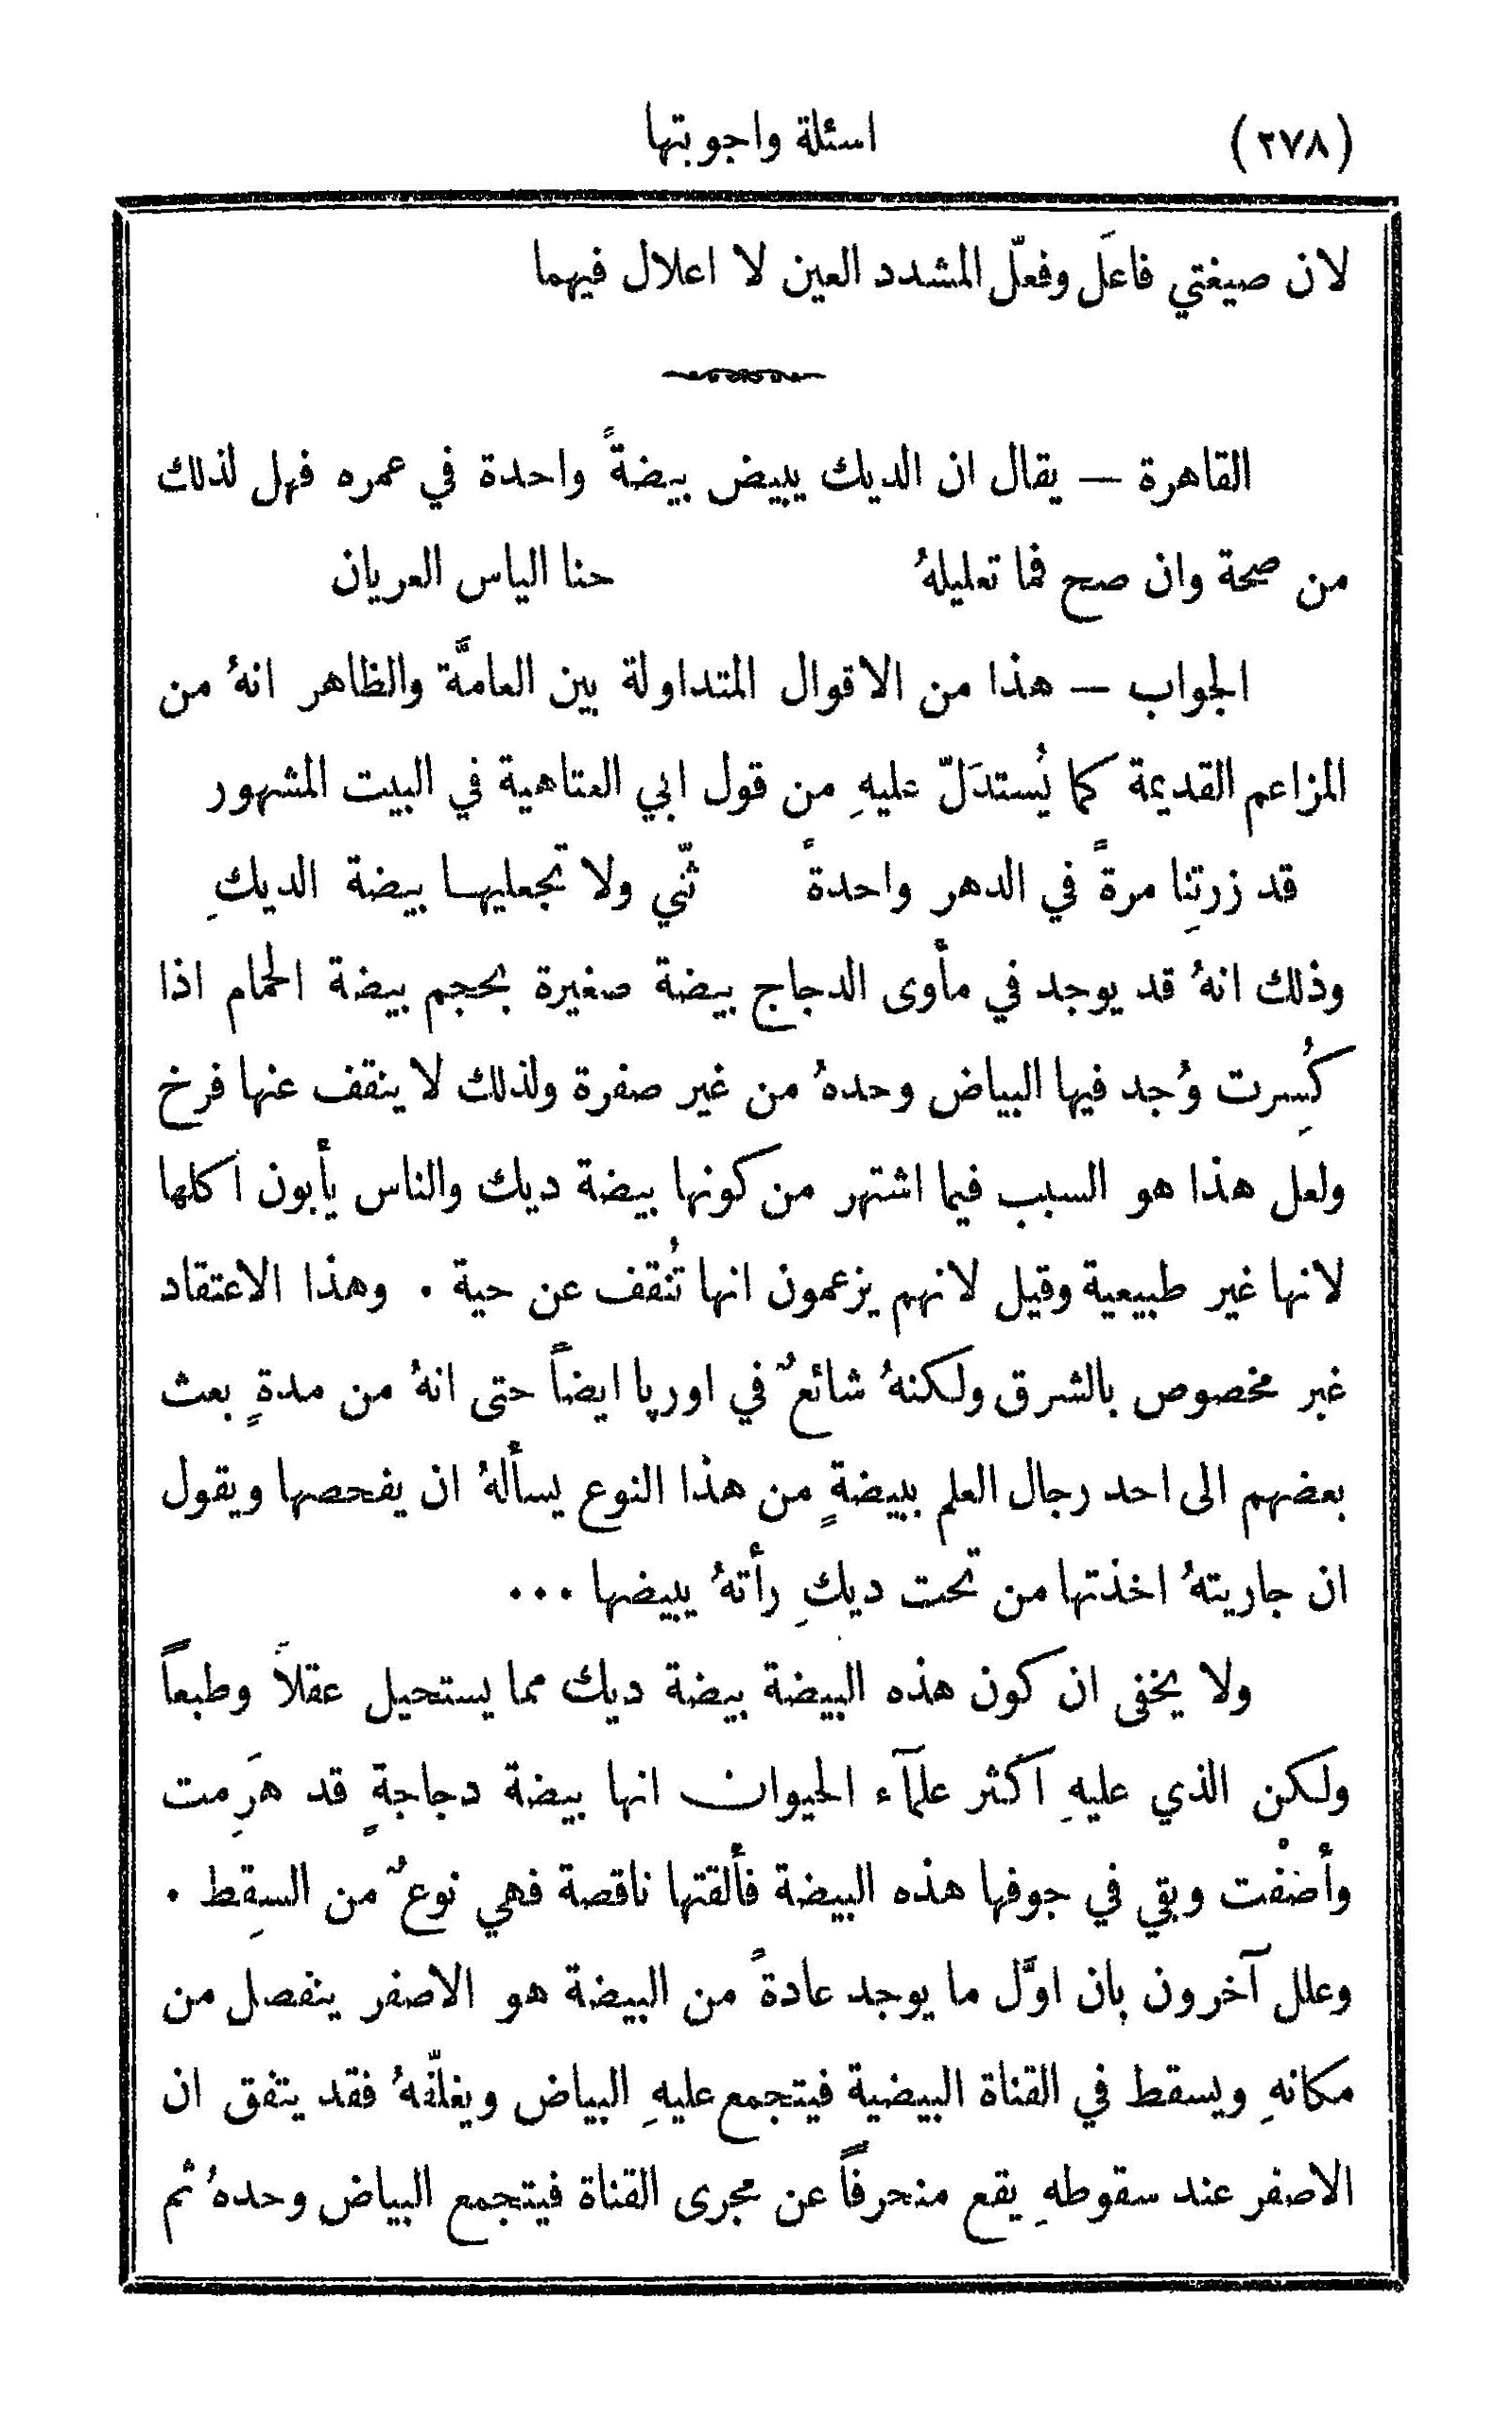 (٢٧٨) اسئلة واجوبتها
لان صيغتي فاعَل وفعّل المشدد العين لا اعلال فيهما
القاهرة — يقال ان الديك يبيض بيضةً واحدة في عمره فهل لذلك
من صحة وان صح فما تعليلهُ حنا الياس العريان
الجواب — هذا من الاقوال المتداولة بين العامَّة والظاهر انهُ من
المزاعم القديمة كما يُستدَلّ عليهِ من قول ابي العتاهية في البيت المشهور
قد زرتِنا مرةً في الدهر واحدةً ثنّي ولا تجعليها بيضة الديكِ
وذلك انهُ قد يوجد في مأوى الدجاج بيضة صغيرة بحجم بيضة الحمام اذا
كُسِرت وُجد فيها البياض وحدهُ من غير صفرة ولذلك لا ينقف عنها فرخ
ولعل هذا هو السبب فيما اشتهر من كونها بيضة ديك والناس يأبون اكلها
لانها غير طبيعية وقيل لانهم يزعمون انها تُنقف عن حية . وهذا الاعتقاد
غير مخصوص بالشرق ولكنهُ شائعٌ في اورپا ايضاً حتى انهُ من مدةٍ بعث
بعضهم الى احد رجال العلم ببيضةٍ من هذا النوع يسألهُ ان يفحصها ويقول
ان جاريتهُ اخذتها من تحت ديكِ رأتهُ يبيضها ...
ولا يخفى ان كون هذه البيضة بيضة ديك مما يستحيل عقلاً وطبعاً
ولكن الذي عليهِ اكثر علمآء الحيوان انها بيضة دجاجةٍ قد هَرِمت
وأضْفت وبقي في جوفها هذه البيضة فألقتها ناقصة فهي نوعٌ من السِقط .
وعلل آخرون بان اوَّل ما يوجد عادةً من البيضة هو الاصفر ينفصل من
مكانهِ ويسقط في القناة البيضية فيتجمع عليهِ البياض ويغلّفهُ فقد يتفق ان
الاصفر عند سقوطهِ يقع منحرفاً عن مجرى القناة فيتجمع البياض وحدهُ ثم